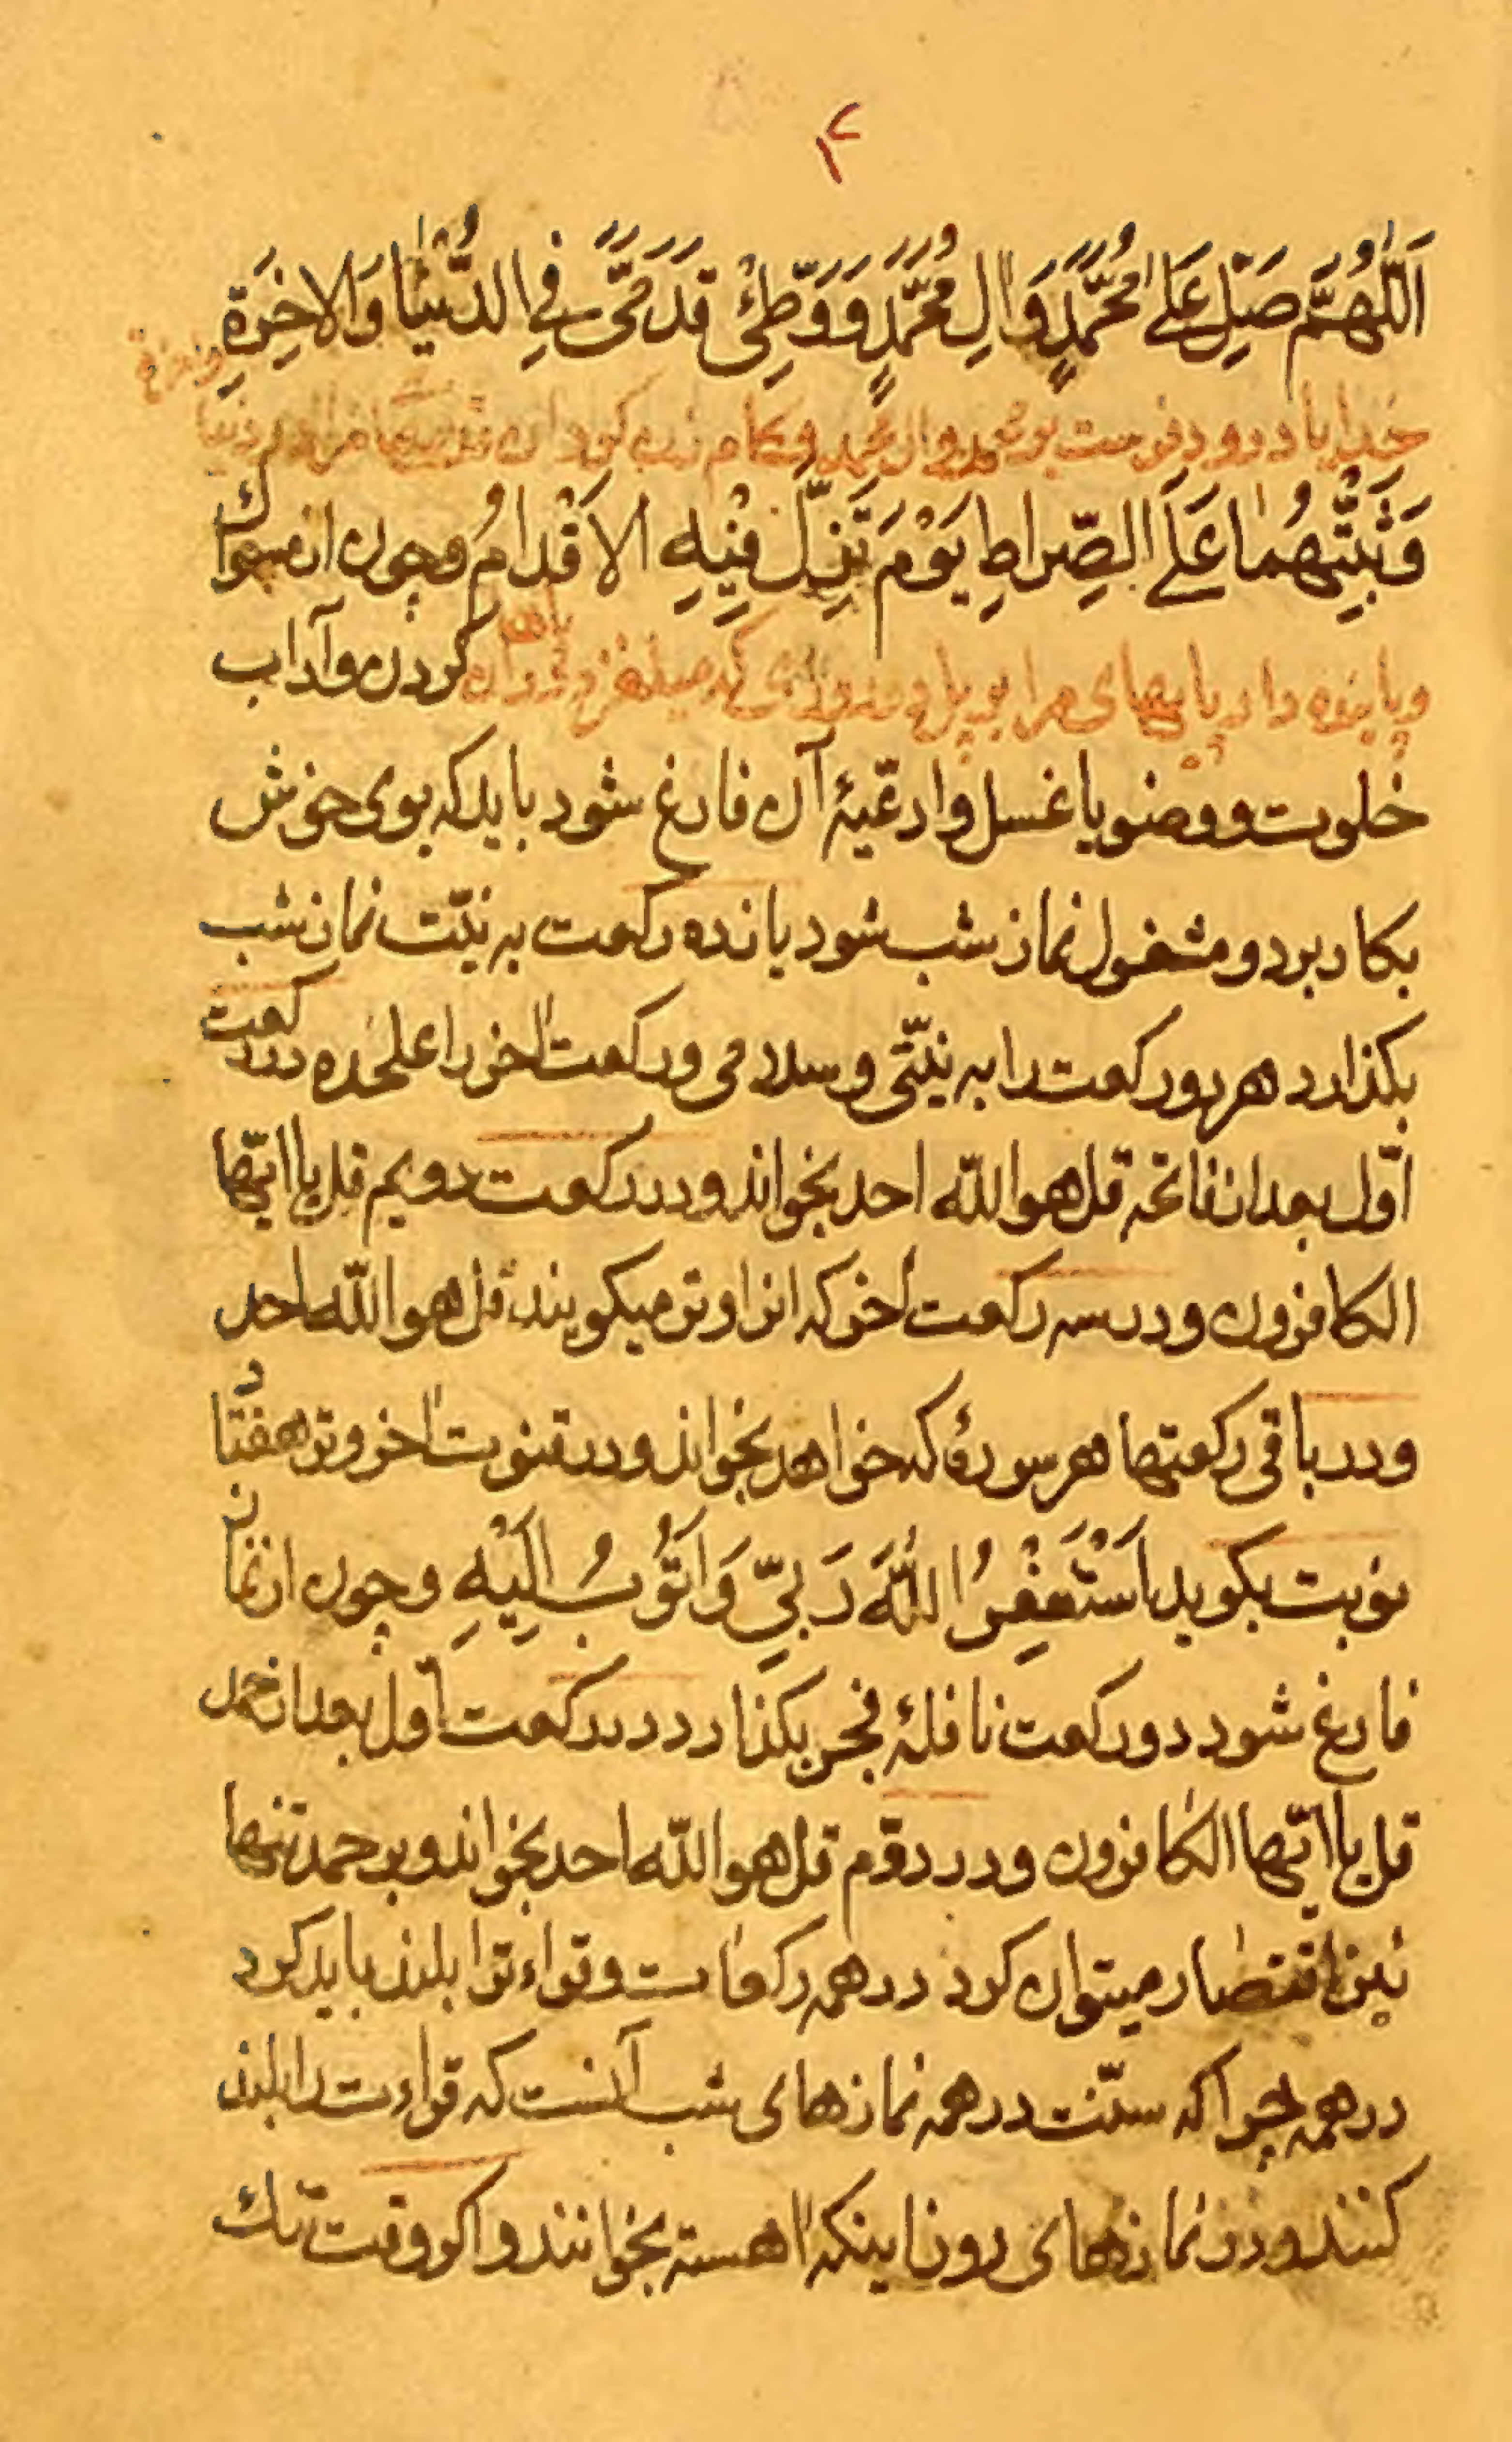 ۱۲
اَللّٰهُمَّ صَلِّ عَلٰی مُحَمَّدٍ وَالِ مُحَمَّدٍ وَ وَطِّئْ قَدَمَیَّ فِی الدُّنْیَا وَالاخِرَةِ
خدایا درود فرست بر محمد وال محمد و مرا در دنیا
واخرة
وَثَبِّتْهُمٰا عَلَی الصِّراطِ یَوْمَ تَزِلُّ فِیْهِ الاَقْدامُ وچون از مسواک
وپاینده دار پایهای مرا بر پل در روزی که میلغزد دران
پاها
کردن وآداب
خلوت و وضو یا غسل وادعیۀ آن فارغ شود باید که بوی خوش
بکار برد و مشغول نماز شب شود یازده رکعت به نیّت نماز شب
بکذارد هر دو رکعت را به نیّتی وسلامی ورکعت اخر را علٰحده در رکعت
اوّل بعد از فاتحه قل هو اللّه احد بخواند ودر رکعت دویم قل یا ایّها
الکافرون ودر سه رکعت اخر که انرا وتر میکویند قل هو اللّه احد
ودر باقی رکعتها هر سورۀ که خواهد بخواند ودر قنوت اخر وتر هفتاد
نوبت بکوید اَسْتَغْفِرُ اللّٰهَ رَبِّی وَاَتُوبُ اِلَیْهِ وچون از نماز
فارغ شود دو رکعت نافلۀ فجر بکذارد در رکعت اول بعد از حمد
قل یا ایّها الکافرون ودر دوّم قل هو اللّه احد بخواند وبر حمد تنها
نیز اقتصار میتوان کرد در همه رکعات وقراءترا بلند باید کرد
در همه چرا که سنّت در همه نمازهای شب آنست که قراءت را بلند
کنند ودر نمازهای روز اینکه اهسته بخوانند واکر وقت تنک